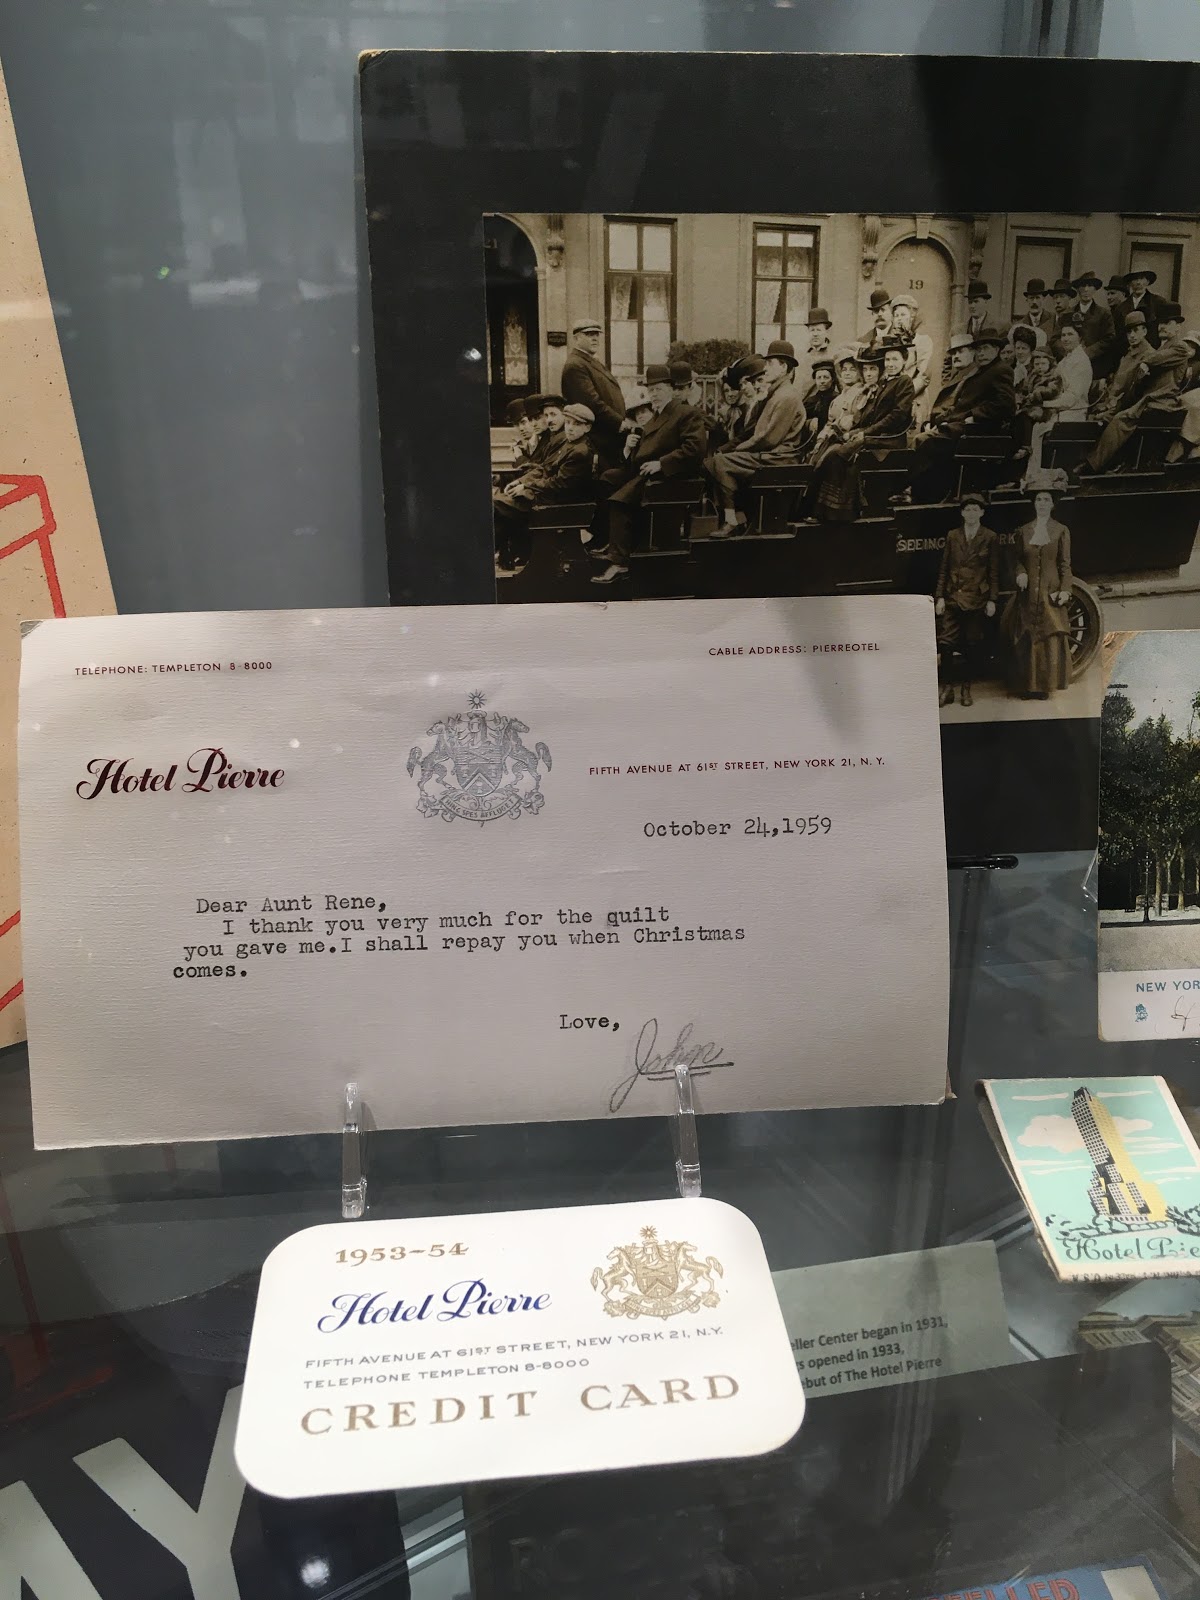 21
19
SEEING
RK
TELEPHONE: TEMPLETON 8-8000
CABLE ADDRESS: PIERREOTEL
Hotel Pierre
FIFTH AVENUE AT 61ST STREET, NEW YORK 21, N. Y.
October 24,1959
Dear Aunt Rene,
I thank you very much for the quilt
you gave me.I shall repay you when Christmas
comes.
Love,
John
NEW YOR
1953-54
Hotel Pierre
FIFTH AVENUE AT 61ST STREET, NEW YORK 21, N.Y.
TELEPHONE TEMPLETON 8-8000
CREDIT CARD
Hotel Pie
eller Center began in 1931,
s opened in 1933,
ebut of The Hotel Pierre
AY